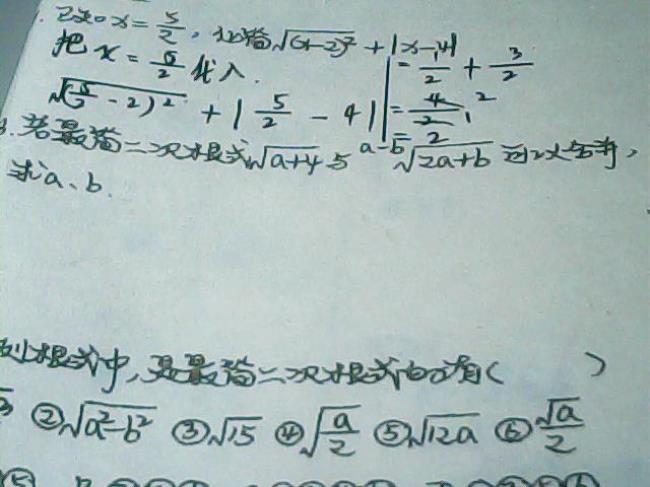 已知x=5/2, 化简√(x-2)² + |x-4|
把 x = 5/2 代入. = 1/2 + 3/2
√(5/2 - 2)² + |5/2 - 4| = 4/2
= 2
3. 若最简二次根式√a+4 与 a-b√2a+b 可以合并,
求a、b.
列根式中,是最简二次根式的有( )
②√a²-b² ③√15 ④√a/2 ⑤√12a ⑥√a/2